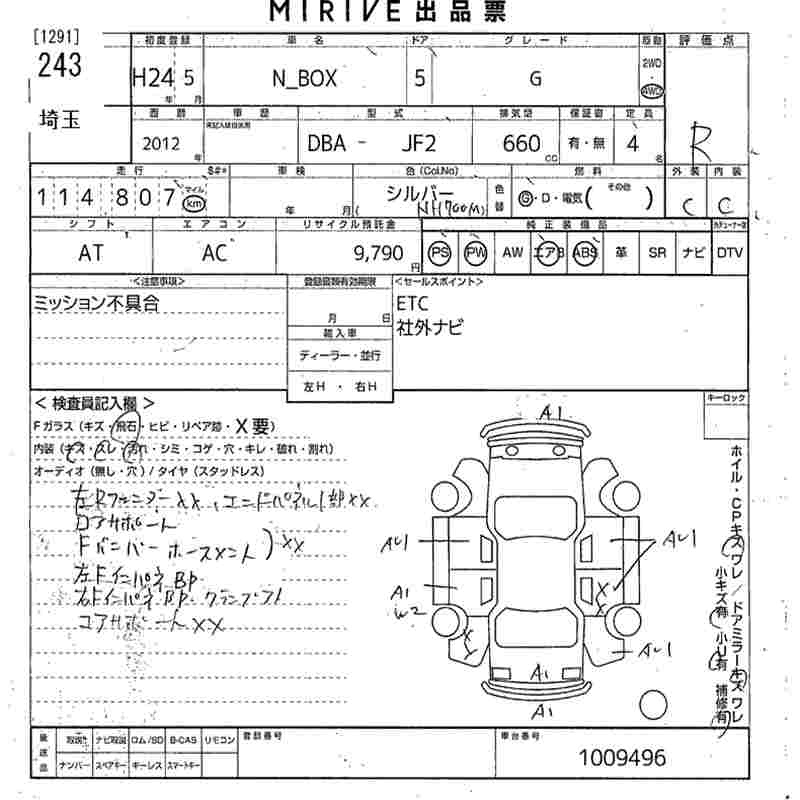 MIRIVE 出品票
[1291]
243
埼玉
初度登録 車名 ドア グレード 駆動 評価点
H24 5 N_BOX 5 G 2WD・4WD
年 月
西暦 車歴 型式 排気量 保証書 定員
2012 DBA - JF2 660 有・無 4 R
年 CC 名
走行 S#* 車検 色(Col.No) 燃料 外装 内装
114 807 マイル km 年 月 シルバー 色替 G・D・電気( その他 ) C C
(NH700M)
シフト エアコン リサイクル預託金 純正装備品
AT AC 9,790円 PS PW AW エアB ABS 革 SR ナビ DTV
<注意事項> 登録書類有効期限 <セールスポイント>
ミッション不具合 月 日 ETC
輸入車 社外ナビ
ディーラー・並行
左H・右H
< 検査員記入欄 > キーロック
Fガラス(キズ・飛石・ヒビ・リペア跡・X要)
内装(キズ・スレ・汚れ・シミ・コゲ・穴・キレ・破れ・割れ)
オーディオ(無し・穴)/タイヤ(スタッドレス)
左Rフェンダーxx,エンドパネル 部xx
コアサポート
Fバンパーホースメント )xx
左FインパネBP
右FインパネBP
コアサポートxx
A1
AU1
AU1
A1
U2
XX
XX
AU1
A1
A1
ホイル・CPキズワレ/ドアミラーキズワレ
小キズ有 小U有 補修有
後送品 取説 ナビ取説 ロム/SD B-CAS リモコン 登録番号 車台番号
ナンバー スペアキー キーレス スマートキー 1009496